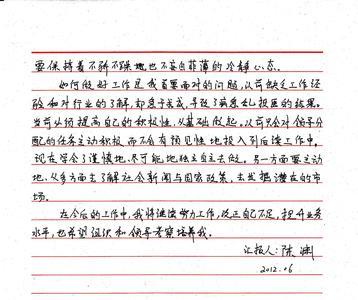 要保持着不骄不躁地也不妄自菲薄的冷静心态。
如何做好工作是我首要面对的问题,以前缺乏工作经
验和对行业的了解,却急于求成,导致了病急乱投医的结果。
当前必须提高自己的积极性,从基础做起。以前只会对领导分
配的任务主动积极而不会有预见性地投入到后续工作中。
现在学会了谨慎地、尽可能地独立自主去做。另一方面要主动
地、从多方面去了解社会新闻与国家政策,去发掘潜在的市
场。
在今后的工作中,我将继续努力工作,改正自己不足,提升业务
水平,也希望组织和领导考察培养我。
汇报人:陈渊
2012.06